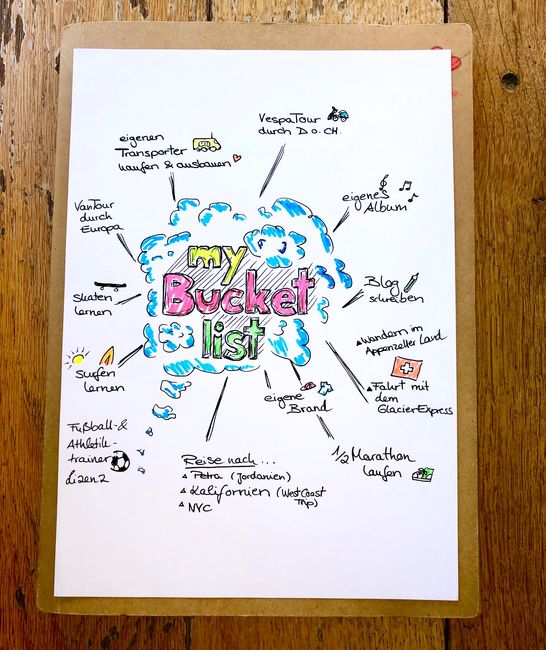 my
Bucket
list
VespaTour
durch D o. CH.
eigenes
Album
Blog
schreiben
Wandern im
Appenzeller Land
Fahrt mit
dem
GlacierExpress
1/2 Marathon
laufen
eigene
Brand
Reise nach ...
Petra (Jordanien)
Kalifornien (WestCoast
Trip)
NYC
Fußball-&
Athletik-
trainer
Lizenz
Surfen
lernen
Skaten
lernen
VanTour
durch
Europa
eigenen
Transporter
kaufen & ausbauen